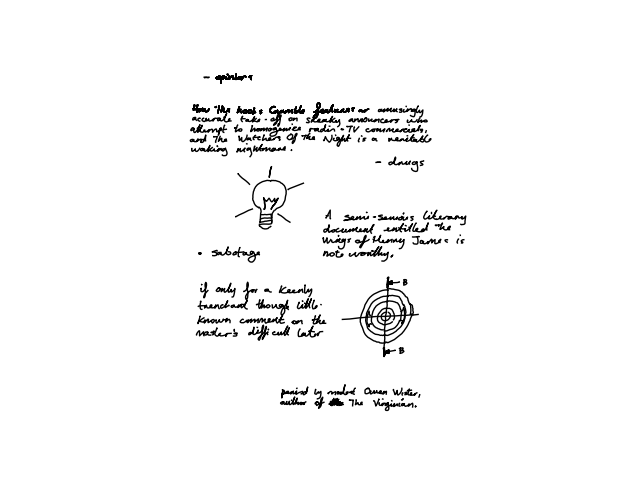 - opinions
How the heels Crumble features an amusingly
accurate take-off on sneaky announcers who
attempt to homogenize radio-TV commercials,
and The Watchers Of The Night is a veritable
waking nightmare.
- drugs
A semi-serious literary
document entitled The
Wings of Henry James is
noteworthy,
• sabotage
if only for a keenly
trenchant though little-
known comment on the
master's difficult later
B
B
period by modest Owen Wister,
author of The Virginian.